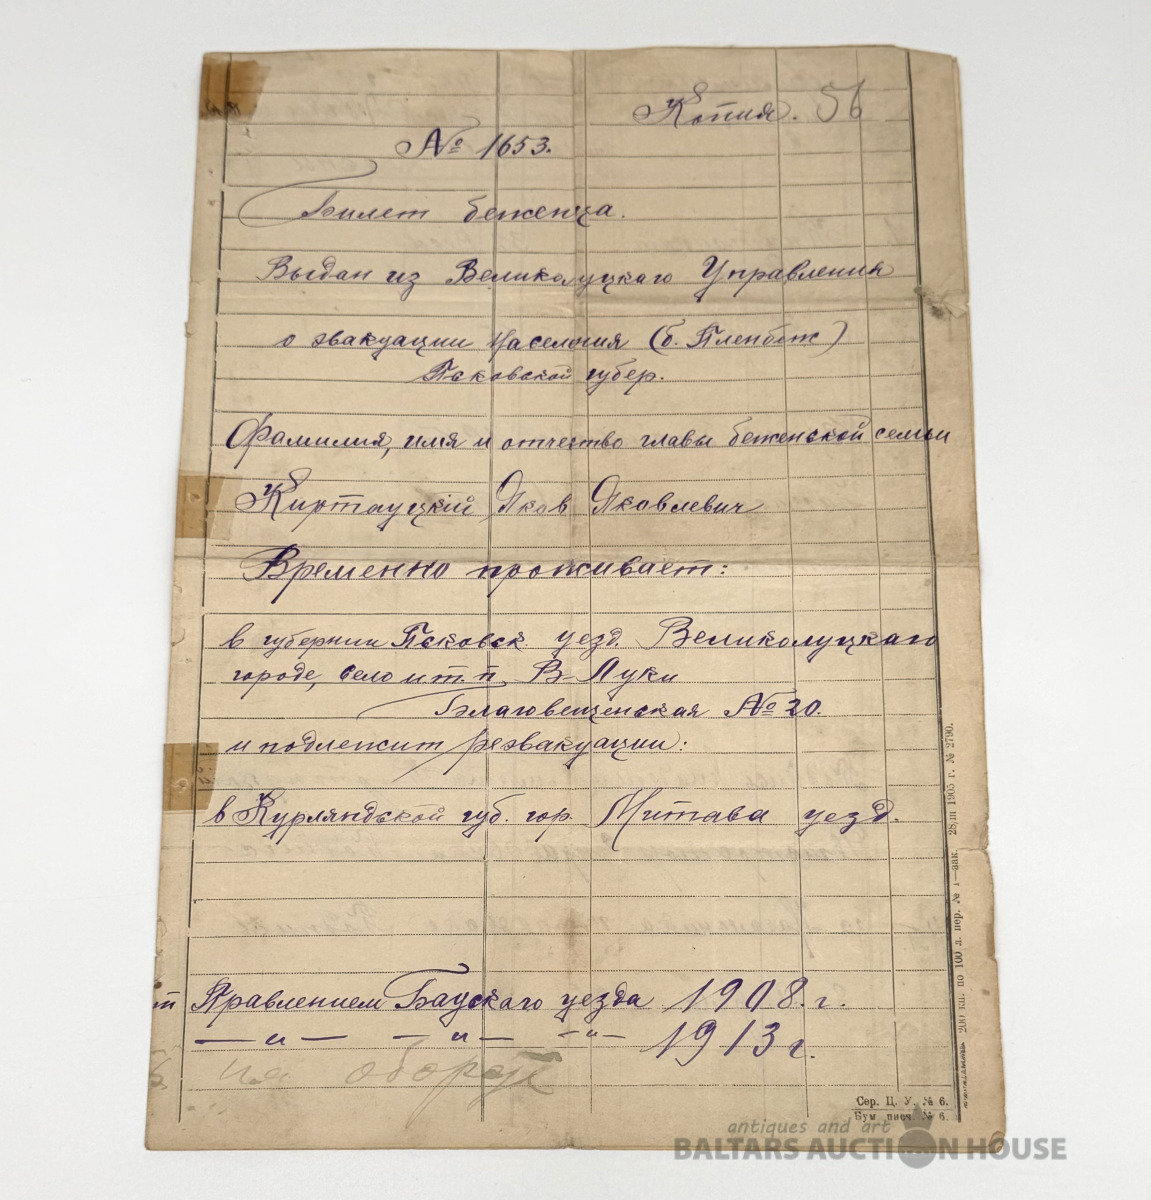 Копия. 56
№ 1653.
Билет беженца.
Выдан из Великолуцкаго Управления
о эвакуации населения (б. Пленбеж)
Псковской губер.
Фамилия, имя и отчество главы беженской семьи
Киртауцкій Яков Яковлевич
Временно проживает:
в губернии Псковск уезд. Великолуцкаго
городе, село и т. п. В-Луки
Благовещенская № 20.
и подлежит реэвакуации:
в Курляндской губ. гор. Митава уезд.
т Правлением Баускаго уезда 1908. г.
— „ — — „ — — „ — 1913 г.
на оборот
28/III 1905 г. № 2790.
200 кн. по 100 л. пер. № 1—зак.
Сер. Ц. У. № 6.
Бум писч. № 6.
antiques and art
BALTARS AUCTION HOUSE